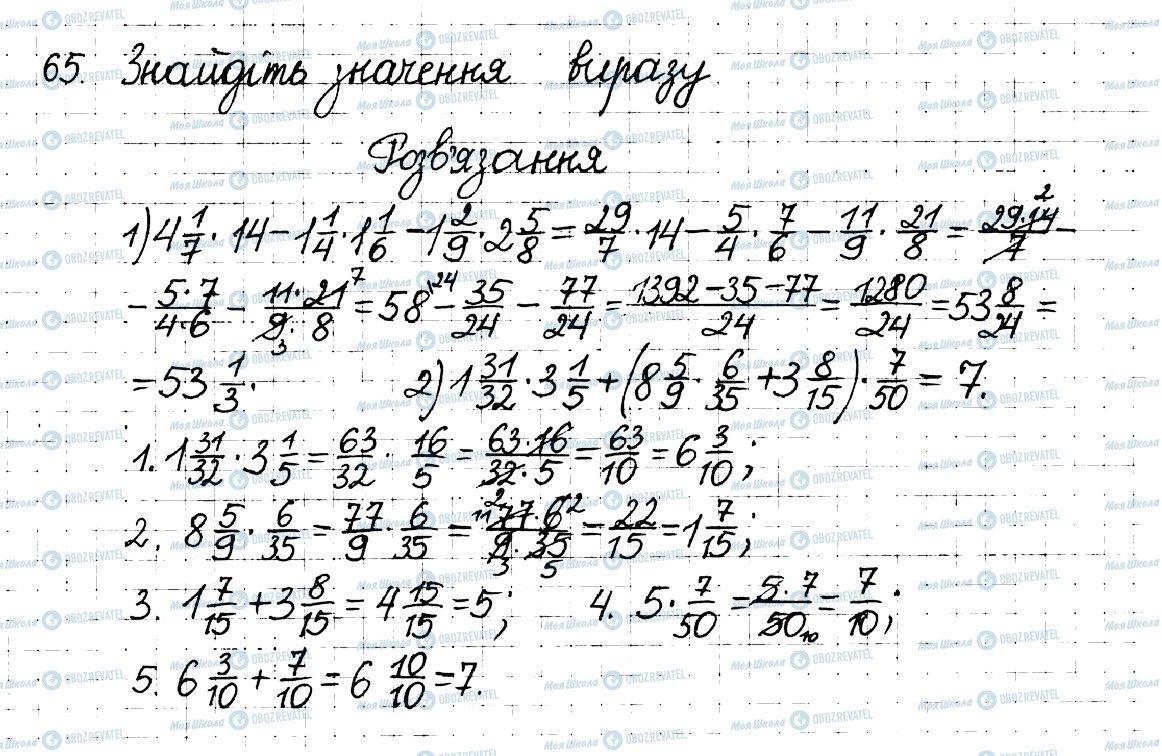 65. Знайдіть значення виразу
Розв'язання
1) 4 1/7 · 14 − 1 1/4 · 1 1/6 − 1 2/9 · 2 5/8 = 29/7 · 14 − 5/4 · 7/6 − 11/9 · 21/8 = 29·14 2/7 −
− 5·7/4·6 − 11·21 7/9 3·8 = 58 24 − 35/24 − 77/24 = 1392−35−77/24 = 1280/24 = 53 8/24 =
= 53 1/3. 2) 1 31/32 · 3 1/5 + (8 5/9 · 6/35 + 3 8/15) · 7/50 = 7.
1. 1 31/32 · 3 1/5 = 63/32 · 16/5 = 63·16/32·5 = 63/10 = 6 3/10;
2. 8 5/9 · 6/35 = 77/9 · 6/35 = 11 77·6 2/9 3·35 5 = 22/15 = 1 7/15;
3. 1 7/15 + 3 8/15 = 4 15/15 = 5; 4. 5 · 7/50 = 5·7/50 10 = 7/10;
5. 6 3/10 + 7/10 = 6 10/10 = 7.
Моя Школа OBOZREVATEL